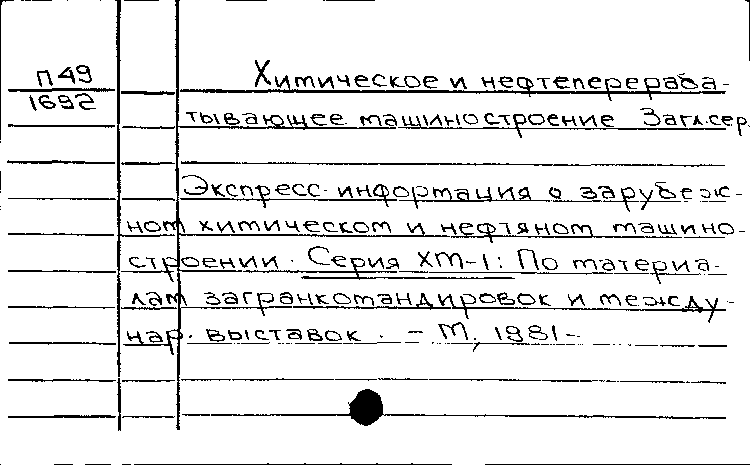 П49
1692
Химическое и нефтеперераба-
тывающее машиностроение Загл.сер.
Экспресс-информация о зарубеж-
ном химическом и нефтяном машино-
строении. Серия ХМ-1: По материа-
лам загранкомандировок и между-
нар. выставок. - М, 1981-